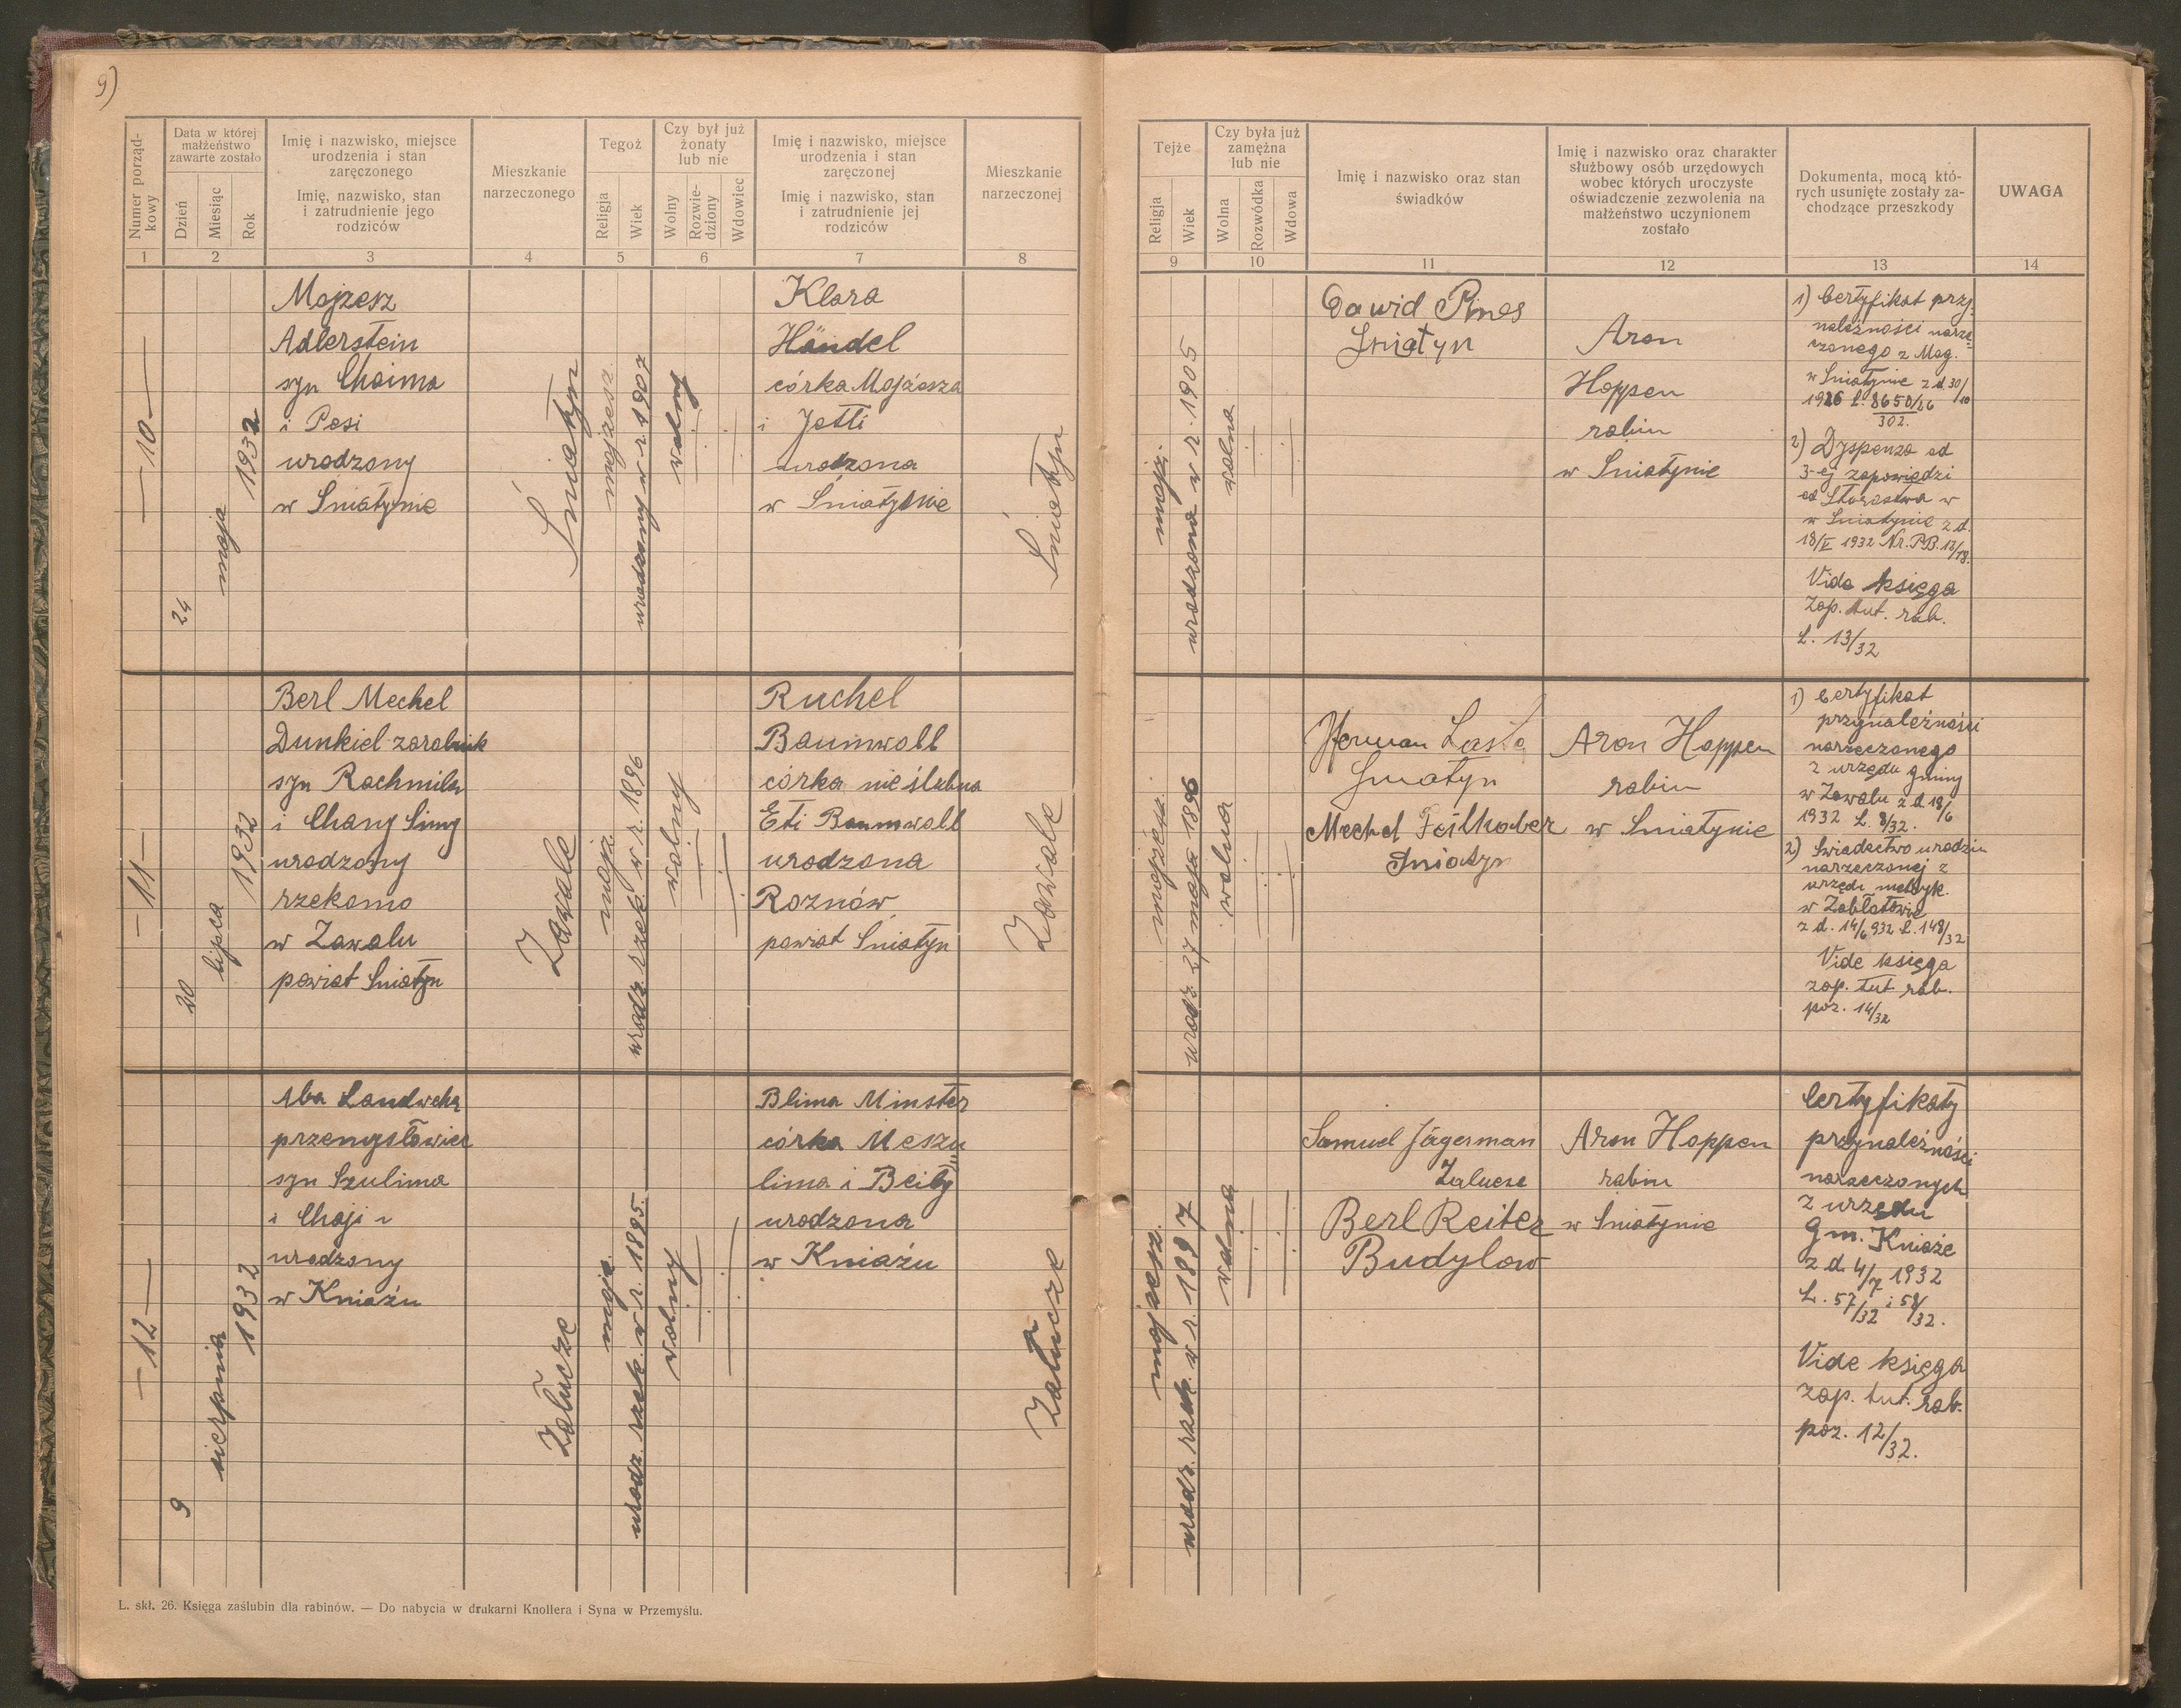 9)
Numer porząd-
kowy
Data w której
małżeństwo
zawarte zostało
Dzień
Miesiąc
Rok
Imię i nazwisko, miejsce
urodzenia i stan
zaręczonego
Imię, nazwisko, stan
i zatrudnienie jego
rodziców
Mieszkanie
narzeczonego
Tegoż
Religja
Wiek
Czy był już
żonaty
lub nie
Wolny
Rozwie-
dziony
Wdowiec
Imię i nazwisko, miejsce
urodzenia i stan
zaręczonej
Imię i nazwisko, stan
i zatrudnienie jej
rodziców
Mieszkanie
narzeczonej
1
2
3
4
5
6
7
8
Tejże
Religja
Wiek
Czy była już
zamężna
lub nie
Wolna
Rozwódka
Wdowa
Imię i nazwisko oraz stan
świadków
Imię i nazwisko oraz charakter
służbowy osób urzędowych
wobec których uroczyste
oświadczenie zezwolenia na
małżeństwo uczynionem
zostało
Dokumenta, mocą któ-
rych usunięte zostały za-
chodzące przeszkody
UWAGA
9
10
11
12
13
14
— 10 —
24
maja
1932
Mojżesz
Adlerstein
syn Chaima
i Pesi
urodzony
w Śniatynie
Śniatyn
mojżesz.
urodzony w r. 1907
wolny
Klara
Händel
córka Mojżesza
i Jetti
urodzona
w Śniatynie
Śniatyn
mojż.
urodzona w r. 1905
wolna
Dawid Pines
Śniatyn
Aron
Hoppen
rabin
w Sniatynie
1) Certyfikat przy-
należności narze-
czonego z Mag.
w Sniatynie z d. 30/10
1926 L. 8650/26
302.
2) Dyspenza od
3-ej zapowiedzi
od Starostwa w
w Sniatynie z d.
18/V 1932 Nr. PB. 12/13.
Vide księga
zap. tut. rab.
L. 13/32
— 11 —
20
lipca
1932
Berl Mechel
Dunkiel zarobnik
syn Rachmila
i Chany Simy
urodzony
rzekomo
w Zawalu
powiat Sniatyn
Zawale
mojż.
urodz. rzek. w r. 1896
wolny
Ruchel
Baumwoll
córka nieślubna
Eti Baumwoll
urodzona
Roznów
powiat Sniatyn
Zawale
mojżesz.
urodz. 27 maja 1896
wolna
Herman
Sniatyn
Mechel
Sniatyn
Aron Hoppen
rabin
w Sniatynie
1) Certyfikat
przynależności
narzeczonego
z urzędu gminy
w Zawalu z d. 18/6
1932 L. 8/32.
2) Swiadectwo urodzin
narzeczonej z
urzędu metryk.
w Zabłotowie
z d. 14/6 932 L. 148/32
Vide księga
zap. tut. rab.
poz. 14/32
— 12 —
9
sierpnia
1932
Aba Landwehr
przemysłowiec
syn Szulima
i Chaji
urodzony
w Kniażu
Załucze
mojż.
urodz. rzek. w r. 1895.
wolny
Blima Minster
córka Meszu
lima i Beily
urodzona
w Kniażu
Załucze
mojżesz.
urodz. rzek. w r. 1897
wolna
Samuel Jägerman
Zalucze
Berl Reiter
Budylow
Aron Hoppen
rabin
w Sniatynie
Certyfikaty
przynależności
narzeczonych
z urzędu
gm. Kniaże
z d. 4/7 1932
L. 57/32 i 58/32.
Vide księga
zap. tut. rab.
poz. 12/32.
L. skł. 26. Księga zaślubin dla rabinów. — Do nabycia w drukarni Knollera i Syna w Przemyślu.